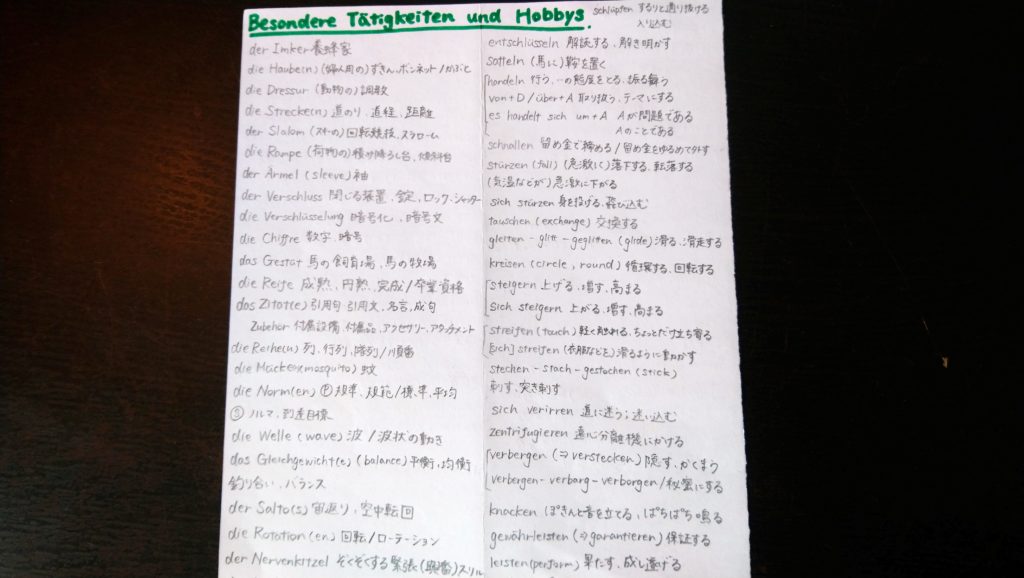 Besondere Tätigkeiten und Hobbys.
der Imker 養蜂家
die Haube(n) (婦人用の)ずきん、ボンネット/かぶと
die Dressur (動物の)調教
die Strecke(n) 道のり、道程、距離
der Slalom (スキーの)回転競技、スラローム
die Rampe (荷物の)積み降ろし台、傾斜台
der Ärmel (sleeve)袖
der Verschluss 閉じる装置、錠、ロック、シャッター
die Verschlüsselung 暗号化、暗号文
die Chiffre 数字、暗号
das Gestüt 馬の飼育場、馬の牧場
die Reife 成熟、円熟、完成/卒業資格
das Zitat(e) 引用句 引用文、名言、成句
Zubehör 付属設備、付属品、アクセサリー、アタッチメント
die Reihe(n) 列、行列、階列/順番
die Mücke(n)(mosquito) 蚊
die Norm(en) Ⓟ規準、規範/標準、平均
Ⓢノルマ、到達目標
die Welle (wave) 波/波状の動き
das Gleichgewicht(e) (balance)平衡、均衡
釣り合い、バランス
der Salto(s) 宙返り、空中転回
die Rotation(en) 回転/ローテーション
der Nervenkitzel ぞくぞくする緊張(興奮)スリル
schlüpfen するりと通り抜ける
入り込む
entschlüsseln 解読する、解き明かす
satteln (馬に)鞍を置く
handeln 行う、…の態度をとる、振る舞う
von+D / über+A 取り扱う、テーマにする
es handelt sich um+A Aが問題である
Aのことである
schnallen 留め金で締める/留め金をゆるめて外す
stürzen (fall) (急激に)落下する、転落する
(気温などが)急激に下がる
sich stürzen 身を投げる、飛び込む
tauschen (exchange) 交換する
gleiten - glitt - geglitten (glide) 滑る、滑走する
kreisen (circle, round) 循環する、回転する
steigern 上げる、増す、高まる
sich steigern 上がる、増す、高まる
streifen (touch) 軽く触れる、ちょっとだけ立ち寄る
[sich] streifen (衣服などを)滑るように動かす
stechen - stach - gestochen (stick)
刺す、突き刺す
sich verirren 道に迷う；迷い込む
zentrifugieren 遠心分離機にかける
verbergen (⇒verstecken) 隠す、かくまう
verbergen - verbarg - verborgen/秘密にする
knacken (ぽきんと音を立てる、ぱちぱち鳴る
gewährleisten (⇒garantieren) 保証する
leisten (perform) 果たす、成し遂げる